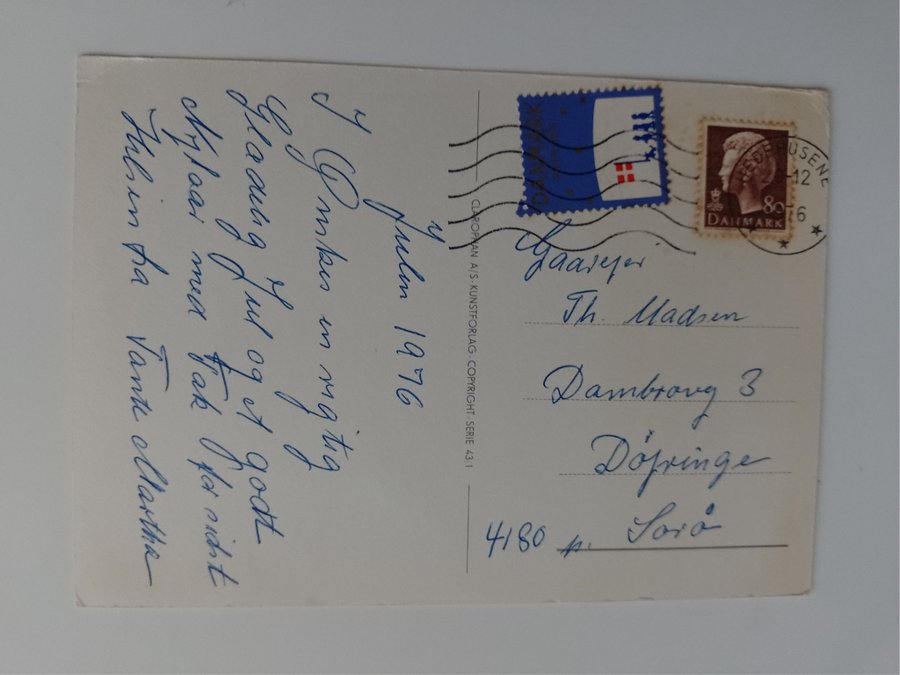 Julen 1976
I Ønskes en rigtig
Glædelig Jul og et godt
Nytaar med Tak for sidst
Hilsen fra Tante Martha
CLAROPHAN A/S· KUNSTFORLAG· COPYRIGHT SERIE 43.1
DANMARK
80
DANMARK
HEDEHUSENE
-12
6
Gaardejer
Th. Madsen
Dambrovej 3
Döjringe
4180 pr. Sorø